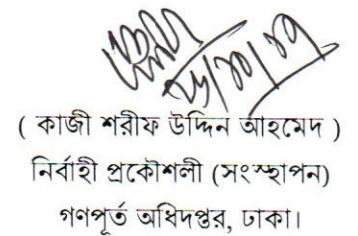 ( কাজী শরীফ উদ্দিন আহমেদ )
নির্বাহী প্রকৌশলী (সংস্হাপন)
গণপূর্ত অধিদপ্তর, ঢাকা।